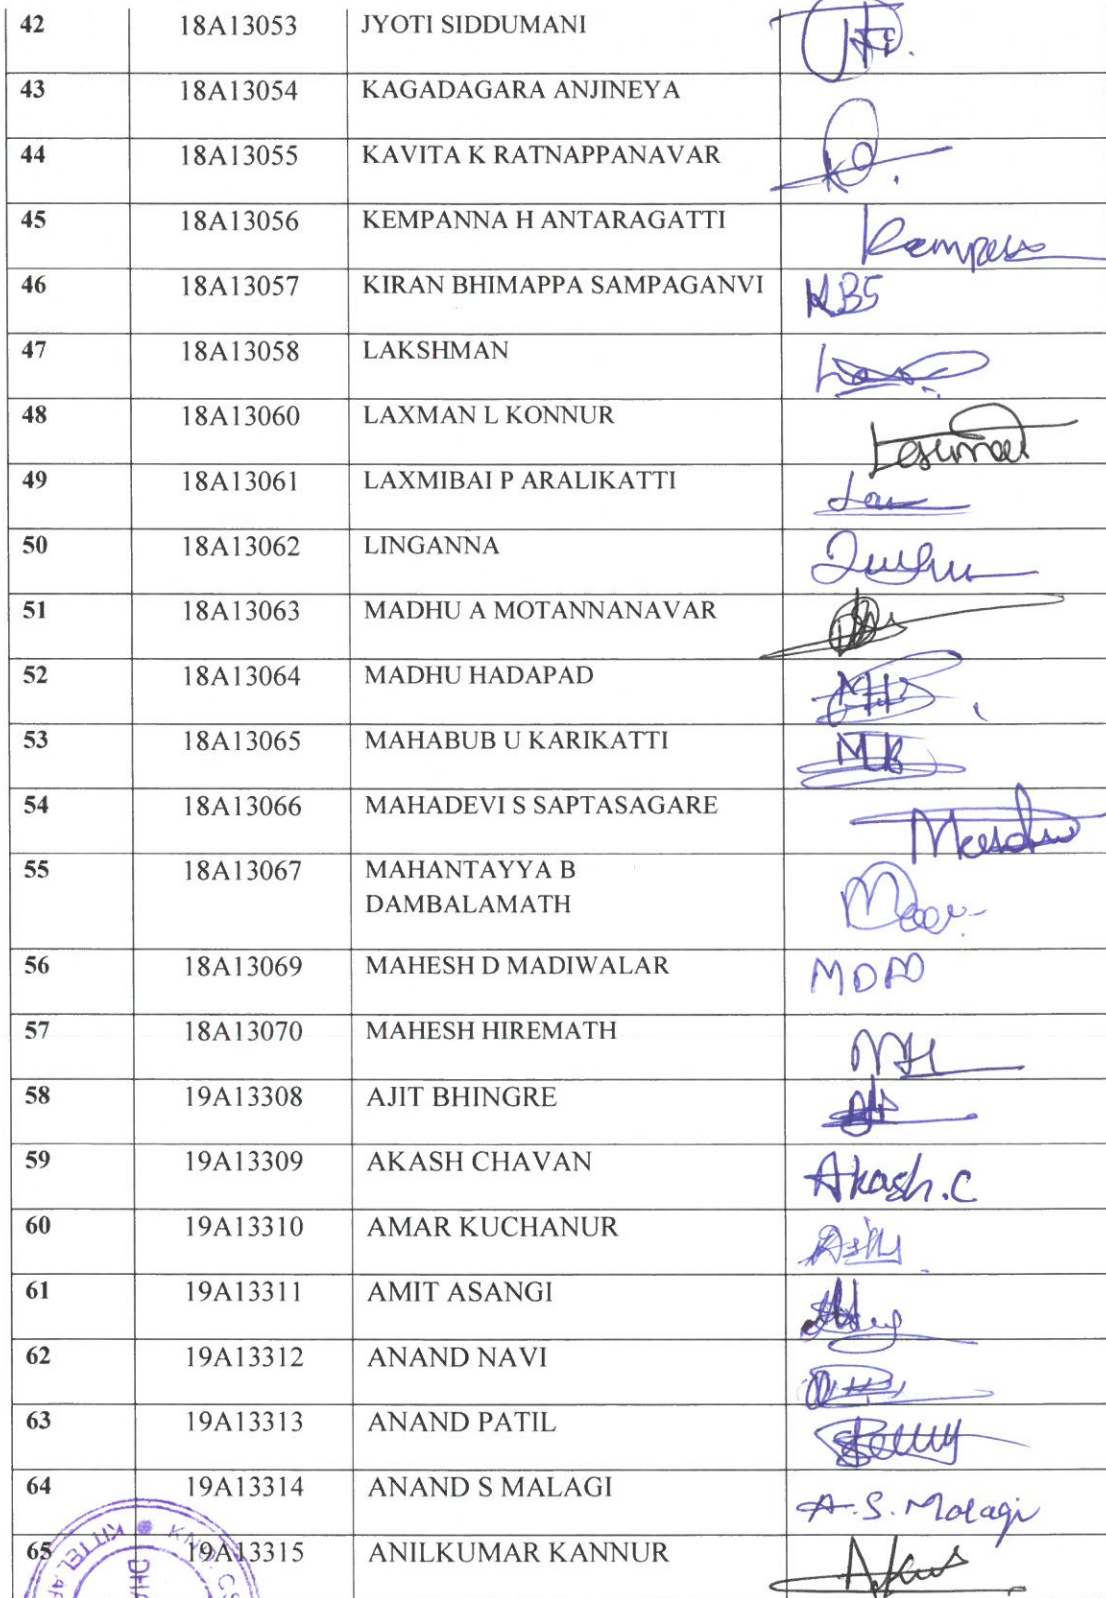 42 18A13053 JYOTI SIDDUMANI
43 18A13054 KAGADAGARA ANJINEYA
44 18A13055 KAVITA K RATNAPPANAVAR
45 18A13056 KEMPANNA H ANTARAGATTI
46 18A13057 KIRAN BHIMAPPA SAMPAGANVI KBS
47 18A13058 LAKSHMAN
48 18A13060 LAXMAN L KONNUR
49 18A13061 LAXMIBAI P ARALIKATTI
50 18A13062 LINGANNA
51 18A13063 MADHU A MOTANNANAVAR
52 18A13064 MADHU HADAPAD
53 18A13065 MAHABUB U KARIKATTI
54 18A13066 MAHADEVI S SAPTASAGARE
55 18A13067 MAHANTAYYA B
DAMBALAMATH
56 18A13069 MAHESH D MADIWALAR MDM
57 18A13070 MAHESH HIREMATH MH
58 19A13308 AJIT BHINGRE
59 19A13309 AKASH CHAVAN Akash.C
60 19A13310 AMAR KUCHANUR
61 19A13311 AMIT ASANGI
62 19A13312 ANAND NAVI
63 19A13313 ANAND PATIL
64 19A13314 ANAND S MALAGI A.S.Malagi
65 19A13315 ANILKUMAR KANNUR